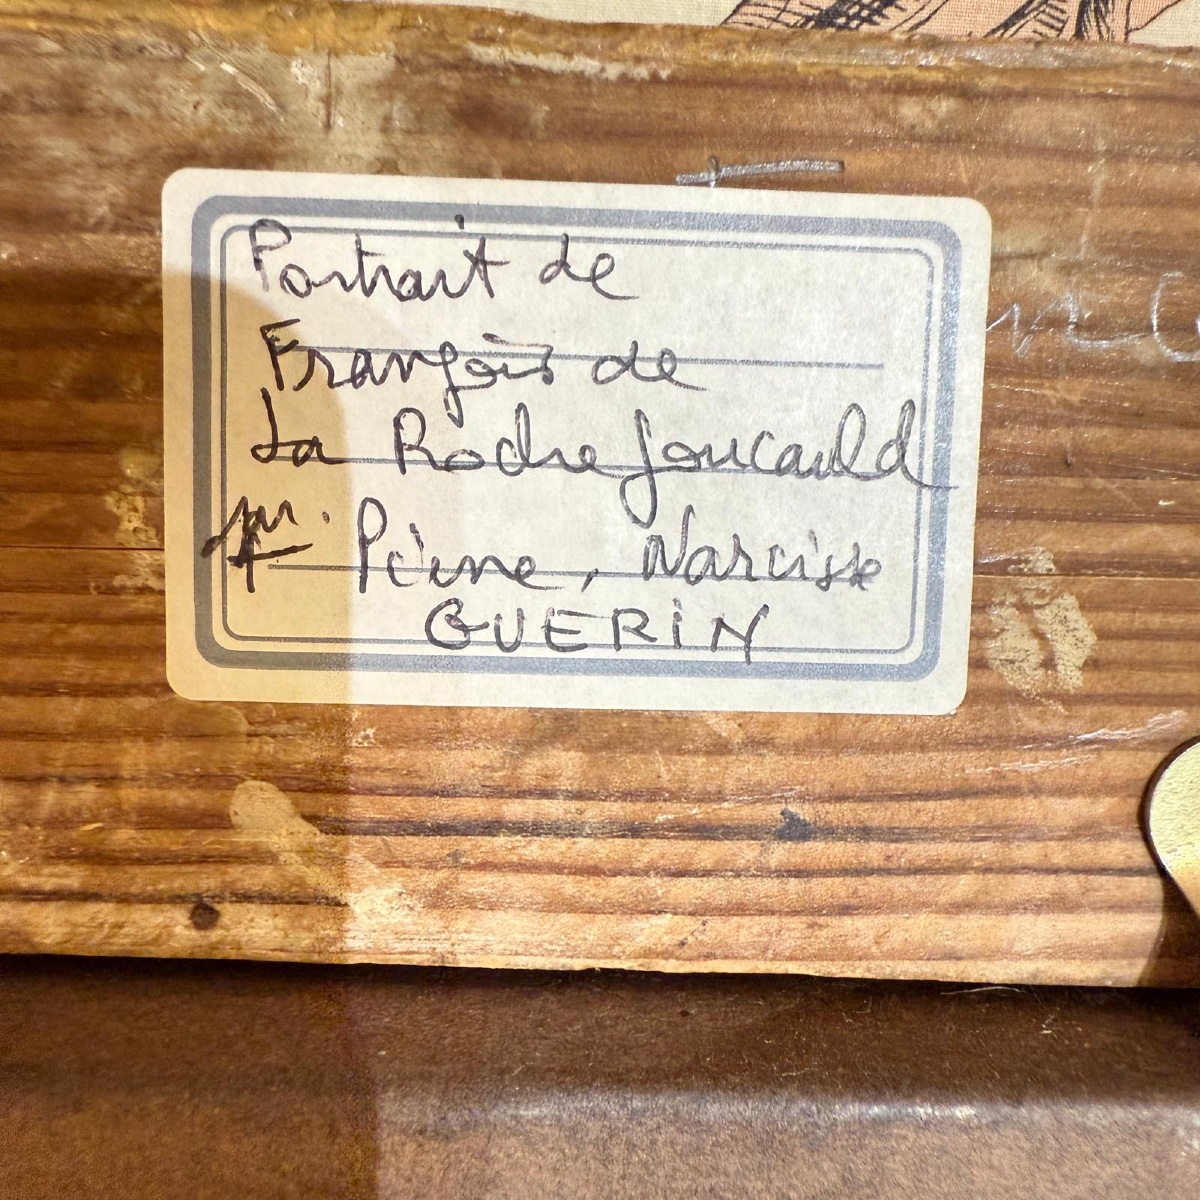 Portrait de
François de
La Rochefoucauld
par Pierre, Narcisse
GUERIN